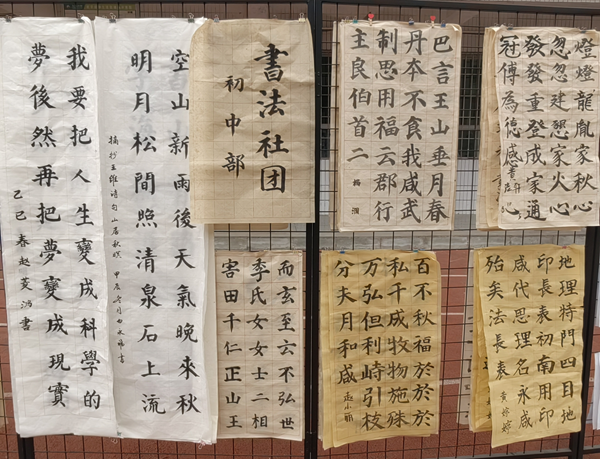 我要把人生變成科學的
夢後然再把夢變成現實
乙巳春趙蒙泗書
空山新雨後天氣晚來秋
明月松間照清泉石上流
摘抄王維诗句山居秋暝
書法社团
初中部
巴言王山垂月春
丹本不食我咸武
制思用福云郡行
主良伯首二
燈燈龍胤家秋心
忽忽建恩家火心
發發重登成家通
冠傅為德感
而玄至云不弘世
季氏女女士二相
害田千仁正山王
百不秋福於於於
私千成牧物施殊
万弘但利時引枝
分夫月和咸
地理特門四目地
印長表初南用印
咸代思理名永咸
殆矣法長表